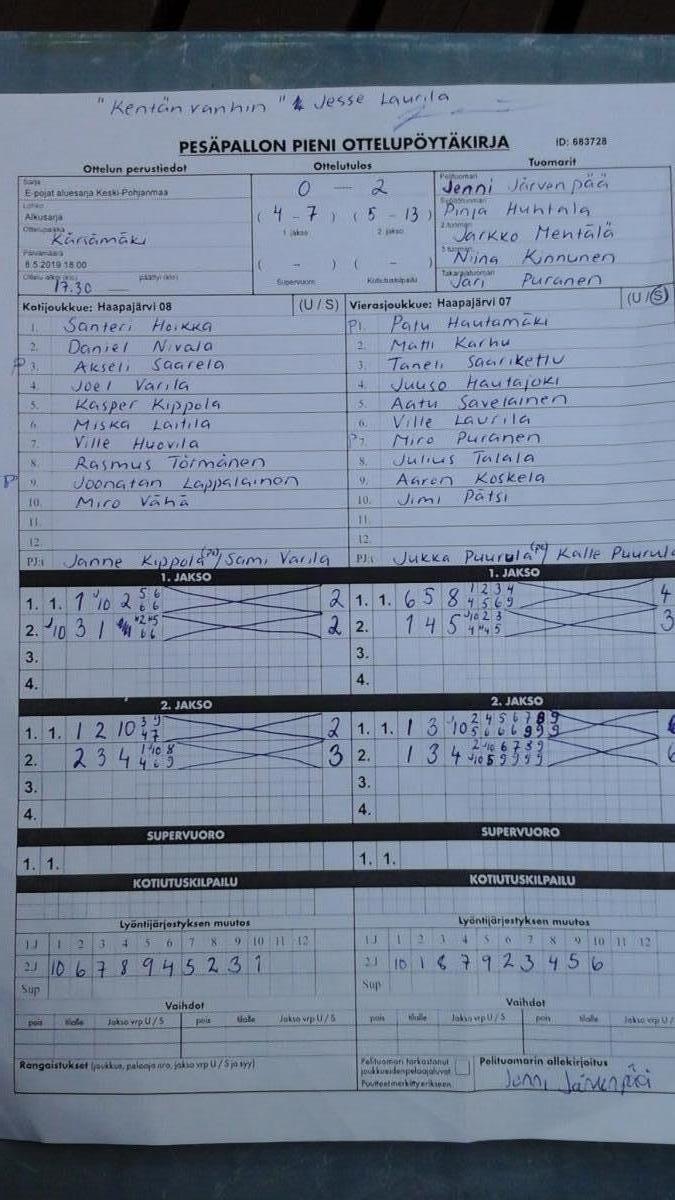 "Kentän vanhin" Jesse Laurila
PESÄPALLON PIENI OTTELUPÖYTÄKIRJA ID: 683728
Ottelun perustiedot Ottelutulos Tuomarit
Sarja
E-pojat aluesarja Keski-Pohjanmaa
Lohko
Alkusarja
Ottelupaikka
Kärsämäki
Päivämäärä
8.5.2019 18.00
Ottelu alkoi (klo) päättyi (klo)
17.30
0 — 2
(4 - 7) (5 - 13)
1. jakso 2. jakso
( - ) ( - )
Supervuoro Kotiutuskilpailu
Pelituomari
Jenni Järvenpää
Pinja Huhtala
2-tuomari
Jarkko Mehtälä
3-tuomari
Niina Kinnunen
Takarajatuomari
Jari Puranen
Kotijoukkue: Haapajärvi 08 (U / S)
1. Santeri Hoikka
2. Daniel Nivala
P 3. Akseli Saarela
4. Joel Varila
5. Kasper Kippola
6. Miska Laitila
7. Ville Huovila
8. Rasmus Törmänen
P 9. Joonatan Lappalainen
10. Miro Vähä
11.
12.
PJ:t Janne Kippola (pe) / Sami Varila
Vierasjoukkue: Haapajärvi 07 (U / S)
P1. Patu Hautamäki
2. Matti Karhu
3. Taneli Saariketlu
4. Juuso Hautajoki
5. Aatu Savelainen
6. Ville Laurila
P7. Miro Puranen
8. Julius Talala
9. Aaron Koskela
10. Jimi Pätsi
11.
12.
PJ:t Jukka Puurula (pe) / Kalle Puurula
1. JAKSO 1. JAKSO
1. 1. 1 10 2 5 6 6 6 2
2. 10 3 1 2
3.
4.
1. 1. 6 5 8 1 2 3 4 4 5 6 9 4
2. 1 4 5 10 2 3 3
3.
4.
2. JAKSO 2. JAKSO
1. 1. 1 2 10 3 9 4 7 2
2. 2 3 4 1 10 8 4 6 9 3
3.
4.
1. 1. 1 3 10 2 4 5 6 7 8 9 5 6 6 6 9 9 9
2. 1 3 4 2 10 6 7 8 9 10 5 9 9 9 9 6
3.
4.
SUPERVUORO SUPERVUORO
1. 1. 1. 1.
KOTIUTUSKILPAILU KOTIUTUSKILPAILU
Lyöntijärjestyksen muutos Lyöntijärjestyksen muutos
1.J 1 2 3 4 5 6 7 8 9 10 11 12
2.J 10 6 7 8 9 4 5 2 3 1
Sup
1.J 1 2 3 4 5 6 7 8 9 10 11 12
2.J 10 1 8 7 9 2 3 4 5 6
Sup
Vaihdot Vaihdot
pois tilalle Jakso vrp U / S pois tilalle Jakso vrp U / S
pois tilalle Jakso vrp U / S pois tilalle Jakso vrp U /
Rangaistukset (joukkue, pelaaja nro, jakso vrp U / S ja syy)
Pelituomari tarkastanut
joukkueiden pelaajaluvat
Puutteet merkitty erikseen
Pelituomarin allekirjoitus
Jenni Järvenpää